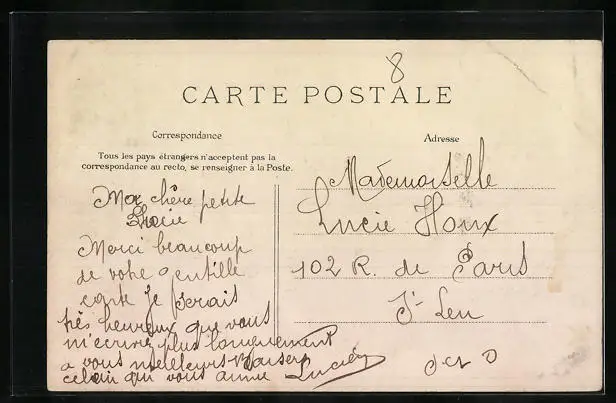 8
CARTE POSTALE
Correspondance
Adresse
Tous les pays étrangers n'acceptent pas la
correspondance au recto, se renseigner à la Poste.
Ma chère petite
Lucie
Merci beaucoup
de votre gentille
carte je serais
très heureux que vous
m'écrivez plus longuement
a vous meilleurs Baisers
celui qui vous aime Lucien
Mademoiselle
Lucie Houx
102 R. de Paris
St Leu
S et O